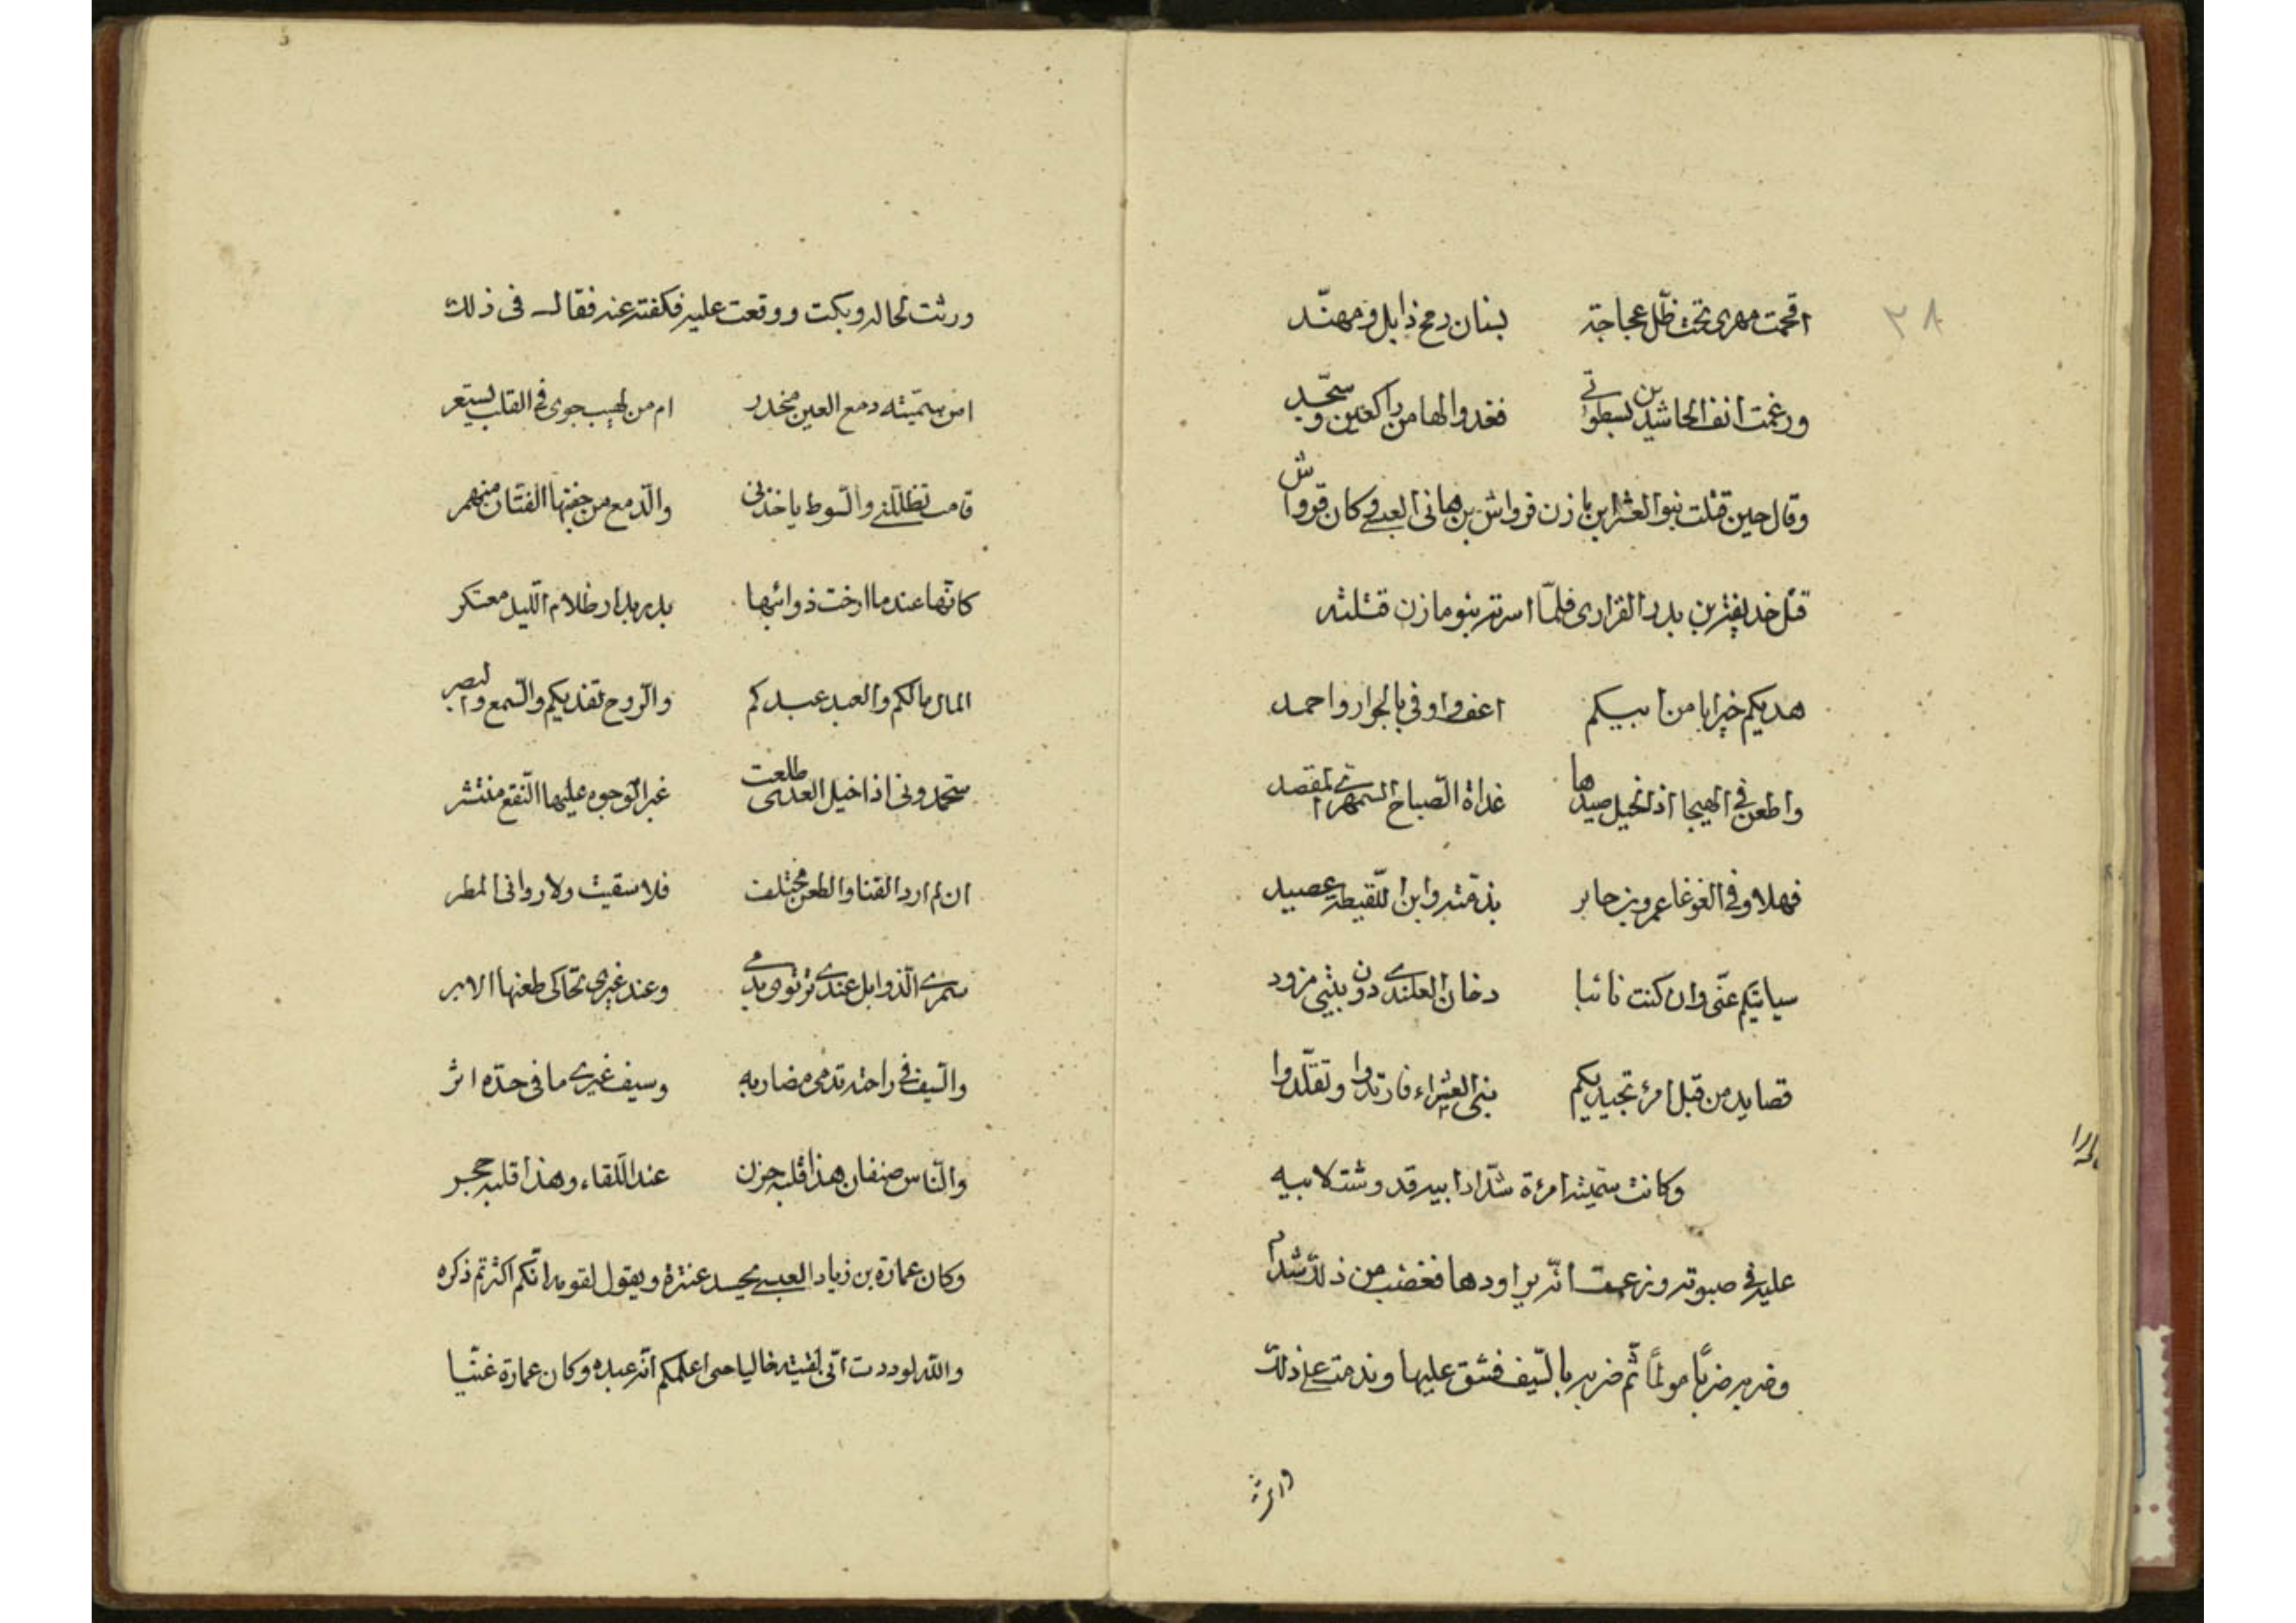 ٣٨
اقحمت مهری تحت ظلّ عجاجة بسنان رمح ذابل ومهنّد
ورغمت انف الحاشدين بسطوتی فغدوا لها من راكعين وسجّد
وقال حين قتلت بنو العشرا بن مازن قرواش بن هانی العبسی وكان قرواش
قتل حذيفة بن بدر الفزاری فلمّا اسرته بنو مازن قتلته
هديكم خير ابا من ابيكم اعف واوفی بالجوار واحمد
واطعن فی الهيجا اذ الخيل صيدها غداة الصّباح السّمهریّ المقصد
فهلا وفی الغوغا عمرو بن جابر بذمّته وابن اللّقيطة عصيد
سياتيكم عنّی وان كنت نائبا دخان العلندی دون بيتی مزود
قصايد من قيل امرئ تجيديكم بنی العشراء فارتدوا وتقلّدوا
وكانت سميّة امرءة شدّاد ابيه قد وشت لابيه
عليه فی صبوته وزعمت انّه يراودها فغضب من ذلك شدادا
وضربه ضربًا مولمًا ثمّ ضربه بالسّيف فشق عليها وندمت علی ذلك
ورثت
ورثت لحاله وبكت ووقعت عليه فكفته عنه فقال فی ذلك
امن سميّته دمع العين منحدر ام من لهيب جوی فی القلب يستعر
قامت تظلّلنی والسّوط ياخذنی والدّمع من جفنها الفتّان منهمر
كانّها عند ما ارخت ذوائبها بدر بدا وظلام اللّيل معتكر
المال مالكم والعبد عبدكم والرّوح تفديكم والسّمع والبصر
ستحمدونی اذا خيل العدی طلعت غبر الوجوه عليها النّقع منتشر
ان لم ارد القنا والطعن مختلف فلا سقيت ولا روانی المطر
سمری الذّوابل عندی ترتوی بدمی وعند غيری تحاكی طعنها الابر
والسّيف فی راحته تدمی مضاربه وسيف غيری ما فی حدّه اثر
والنّاس صنفان هذا قلبه حزن عند اللّقاء وهذا قلبه حجر
وكان عمارة بن زياد العبسی يحسد عنترة ويقول لقومه انّكم اكثرتم ذكره
واللّه لوددت انّی لقيته خاليا حتی اعلمكم انّه عبد وكان عمارة غنّيا